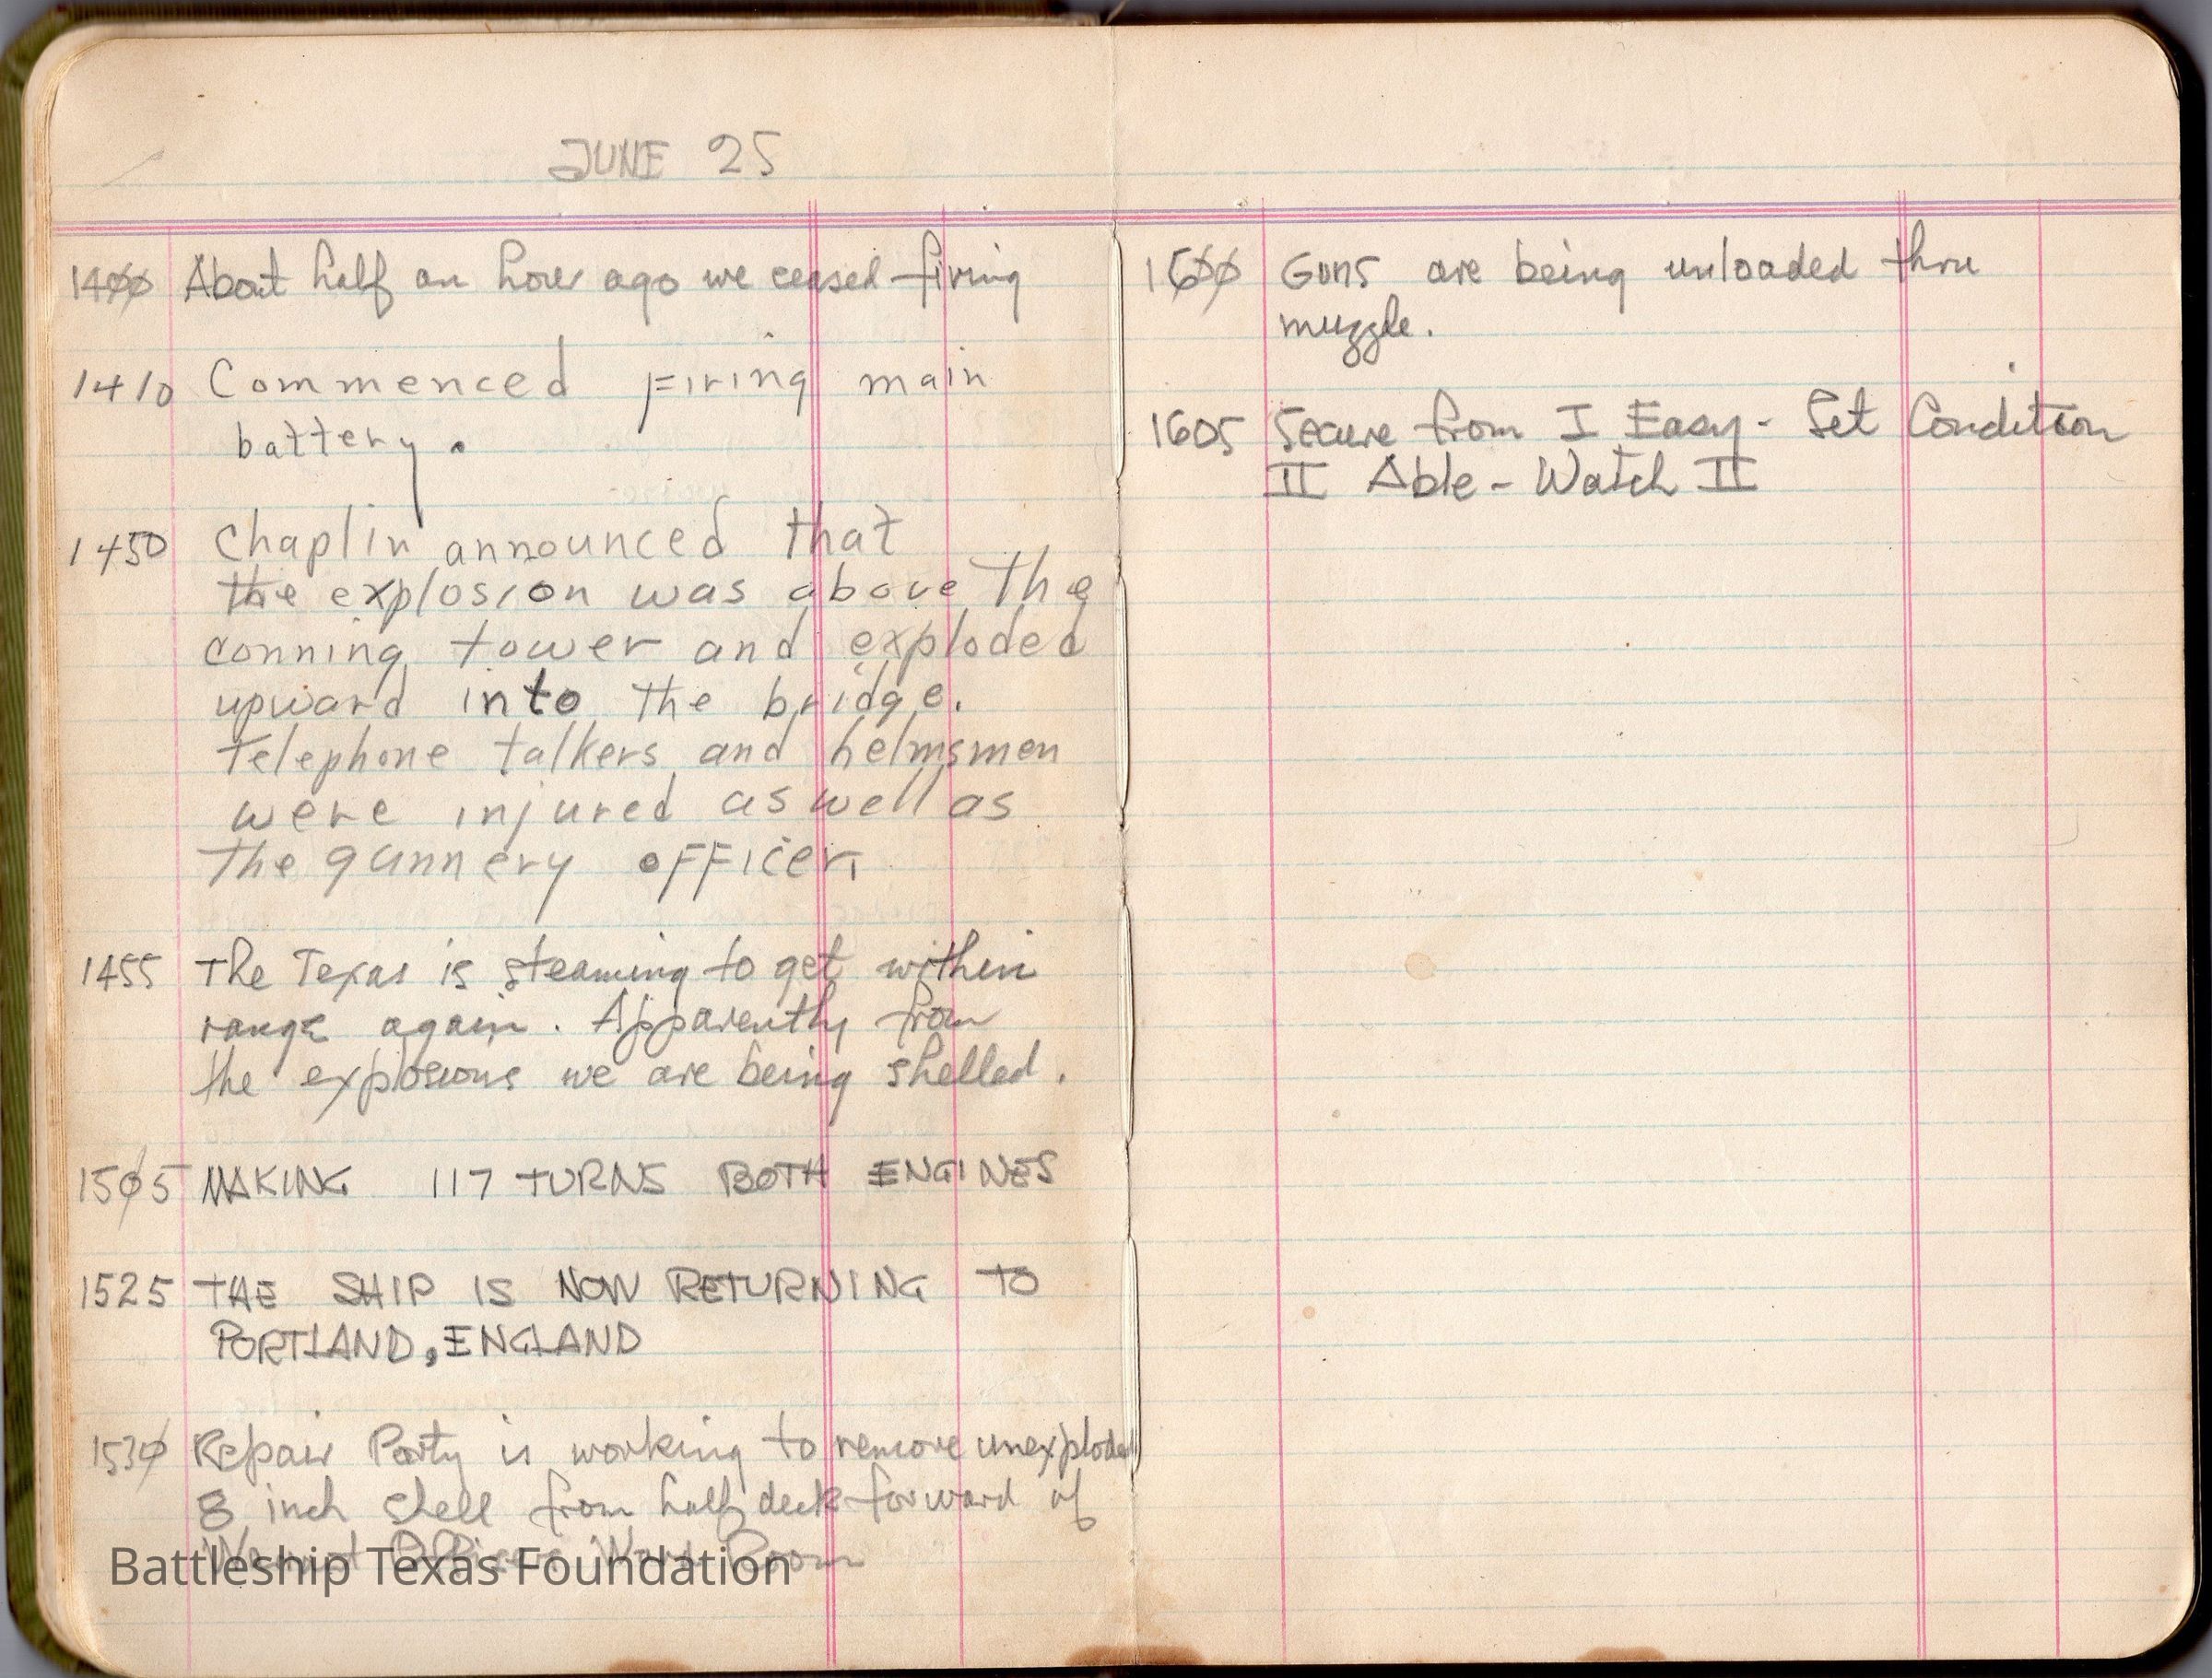 JUNE 25
1400 About half an hour ago we ceased firing
1410 Commenced Firing main
battery.
1450 Chaplin announced that
the explosion was above the
conning tower and exploded
upward into the bridge.
Telephone talkers and helmsmen
were injured as well as
the gunnery officer.
1455 The Texas is steaming to get within
range again. Apparently from
the explosions we are being shelled.
1505 MAKING 117 TURNS BOTH ENGINES
1525 THE SHIP IS NOW RETURNING TO
PORTLAND, ENGLAND
1530 Repair Party is working to remove unexploded
8 inch shell from half deck forward of
Warrant Officers Ward Room
Battleship Texas Foundation
1600 Guns are being unloaded thru
muzzle.
1605 Secure from I Easy - Set Condition
II Able - Watch II